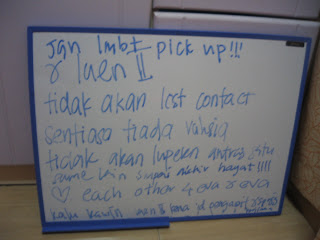 jgn lmbt pick up!!!
r luen II
tidak akan lost contact
sentiasa tiada rahsia
tidak akan lupakan antara satu
same lain sampai akhir hayat!!!!
♡ each other 4 eva r eva
kalu kawin kena jd pengapit